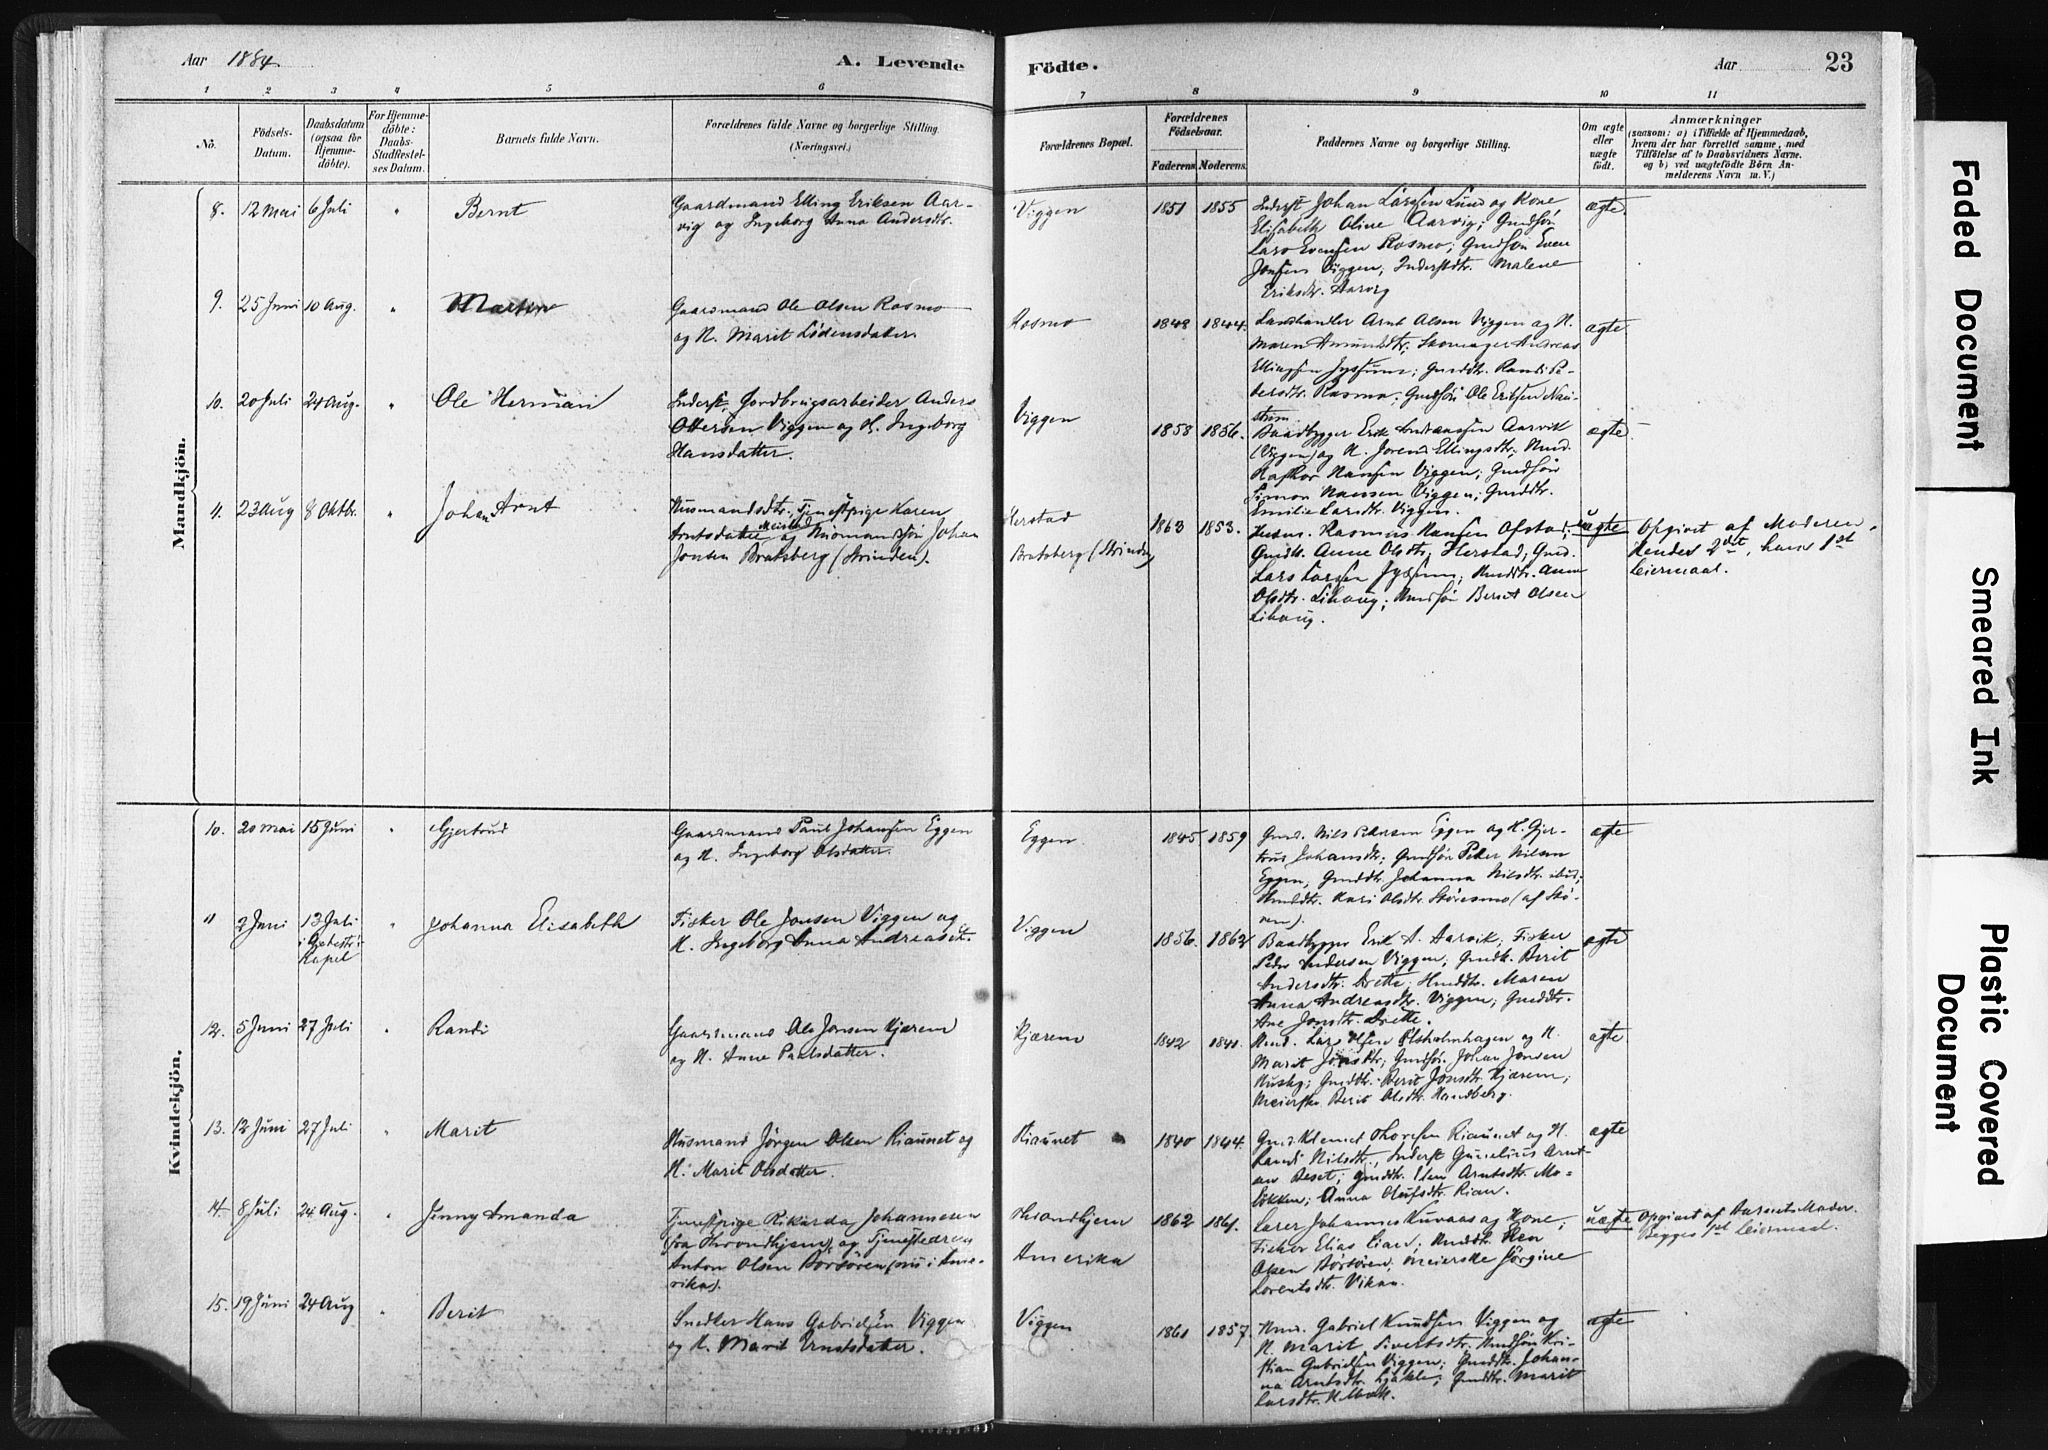 Aar 1884.
A. Levende Födte.
Aar 23
1 2 3 4 5 6 7 8 9 10 11
No.
Födsels-Datum.
Daabsdatum (ogsaa for Hjemme-döbte).
For Hjemme-döbte: Daabs-Stadfæstel-ses Datum.
Barnets fulde Navn.
Forældrenes fulde Navne og borgerlige Stilling.
(Næringsvei.)
Forældrenes Bopæl.
Forældrenes Födselsaar.
Faderens. Moderens.
Faddernes Navne og borgerlige Stilling.
Om ægte eller uægte födt.
Anmærkninger
(saasom: a) i Tilfælde af Hjemmedaab,
hvem der har forrettet samme, med
Tilföielse af to Daabsvidners Navne.
og b) ved uægtefödte Börn An-
melderens Navn m. V.)
Mandkjön.
8. 12 Mai 6 Juli " Bernt
Gaardmand Elling Eriksen Aar-
vig og Ingeborg Anna Andersdtr.
Viggen 1851 1855
Inderst Johan Larssen Lund og Kone
Elisabeth Oline Aarvig; Gmdsön
Lars Evensen Rosmo; Gmdsön Even
Jonsen Viggen; Inderstdtr. Malene
Eriksdtr. Aarvig
ægte
9. 25 Juni 10 Aug. "
Gaardmand Ole Olsen Rosmo
og K. Marit Lödensdatter.
Rosmo 1848 1844.
Landhandler Arnt Olsen Viggen og K.
Maren Amundsdtr; Skomager Andreas
Ellingsen ; Gmdtr. Randi Pe-
dersdtr. Rosmo; Gmdsön Ole Eriksen Nau-
strim
ægte
10. 20 Juli 24 Aug. " Ole Herman
Inderst, Jordbrugsarbeider Anders
Ottersen Viggen og K. Ingeborg
Hansdatter.
Viggen 1858 1856.
Baadbygger Erik Andreassen Aarvik
(Viggen) og K. Jorend Ellingsdtr; Gmd.
Hansen Viggen; Gmdsön
Simon Hansen Viggen; Gmddtr.
Emilie Larsdtr. Viggen.
ægte
11. 23 Aug 8 Oktbr. " Johan Arnt
Husmandsdtr., Tjenestpige Karen
Arntsdatter og Husmandssön Johan
Jonsen Bratsberg (Strinden).
Herstad
Bratsberg (Strinden)
1863 1853.
Husm. Rasmus Hansen Ofstad;
Gmdtr. Anne Olsdtr. Herstad; Gmd.
Lars Larsen ; Hmdtr. Anne
Olsdtr. Lihaug; Hmdsön Berset Olsen
Lihaug.
uægte
Opgivet af Moderen.
Hendes 2det, hans 1st
leiermaal.
Kvindekjön.
10. 20 Mai 15 Juni " Gjertrud
Gaardmand Paul Johansen Eggen
og K. Ingeborg Olsdatter.
Eggen 1845 1859
Gmd. Nils Pedersen Eggen og K. Gjer-
trud Johansdtr; Gmdsön Peter Nilsen
Eggen, Gmddtr. Johanna Nilsdtr. ibid;
Hmddtr. Kari Olsdtr Störesmo (af Stö-
ren).
ægte
" 2 Juni 13 Juli i Kapel " Johanna Elisabeth
Fisker Ole Jonsen Viggen og
K. Ingeborg Anna Andreasdtr.
Viggen 1856. 1862
Baadbygger Erik A. Aarvik; Fisker
Peder Andersen Viggen; Gmdk. Berit
Andersdtr. ; Hmddtr. Maren
Anna Andreasdtr. Viggen; Gmddtr.
Ane Jonsdtr.
ægte
12. 5 Juni 27 Juli " Randi
Gaardmand Ole Jonsen Kjærem
og K. Anne Paulsdatter.
Kjærem 1842 1841.
Hmd. Lars Olsen Olsholmhagen og K.
Marit Jonsdtr; Gmdsön. Johan Jonsen
Husby; Gmddtr. Berit Jonsdtr. Kjærem;
Meierske Berit Olsdtr. Handberg.
ægte
13. 12 Juni 27 Juli " Marit
Husmand Jörgen Olsen Riaunet og
K. Marit Olsdatter.
Riaunet 1840 1844.
Gmd. Klemet Thoresen Riaunet og K.
Randi Nilsdtr., Inderst Gunelius Arnt-
sen Beset; Gmdtr. Elen Arntsdtr. Mo-
lökken; Anna Olufsdtr. Rian.
ægte
14. 8 Juli 24 Aug. " Jenny Amanda
Tjenestpige Rikarda Johannesen
(fra Throndhjem), og Tjenestedreng
Anton Olsen Börsören (nu i Ame-
rika).
Throndhjem
Amerika
1862 1861.
Lærer Johannes Kuvaas og Kone;
Fisker Elias ; Hmddtr. Elen
Olsen Börsören, Meierske Jörgine
Lorentsdtr. Vikan.
uægte
Opgivet af Barnets Moder.
Begges 1st leiermaal.
15. 19 Juni 24 Aug " Berit
Snedker Hans Gabrielsen Viggen
og K. Marit Arntsdatter.
Viggen 1861 1857
Hmd. Gabriel Knudsen Viggen og
K. Marit Sivertsdtr. Hmdsön Kri-
stian Gabrielsen Viggen; Gmddtr. Johan-
na Arntsdtr. ; Gmddtr. Marit
Larsdtr.
ægte
Faded Document
Smeared Ink
Plastic Covered
Document